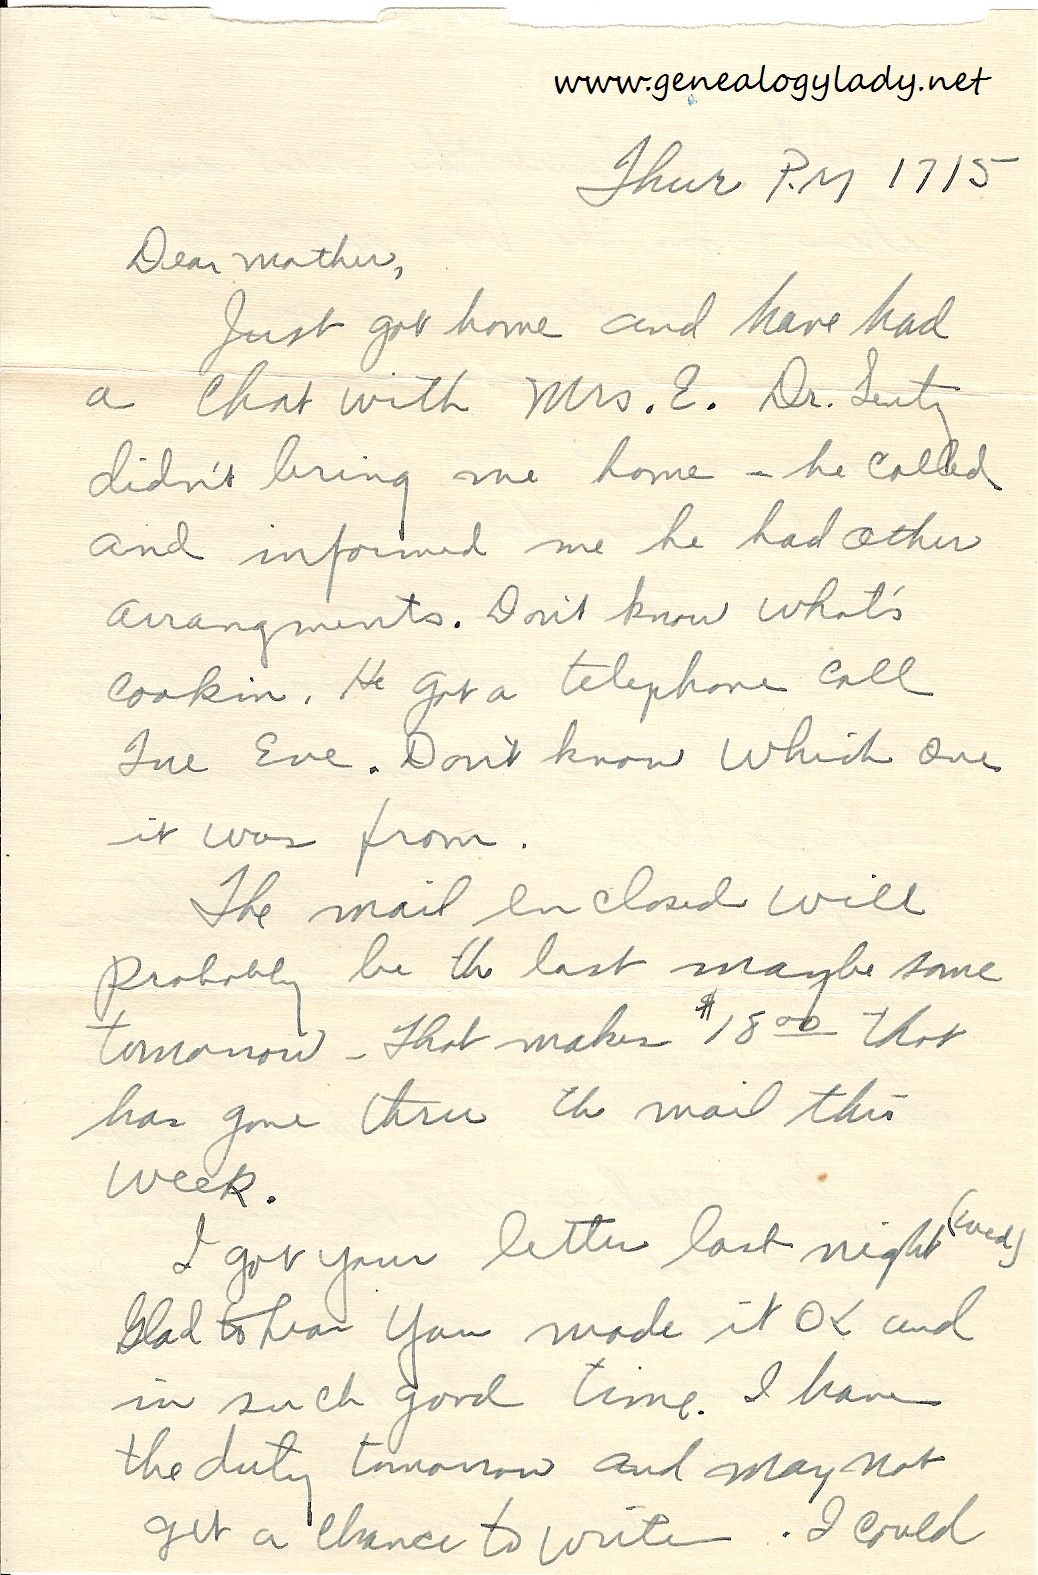 www.genealogylady.net
Thur P.M 1715
Dear Mother,
Just got home and have had
a chat with Mrs. E. Dr. Lentz
didn't bring me home - he called
and informed me he had other
arrangments. Don't know what's
cookin. He got a telephone call
Tue Eve. Don't know which one
it was from.
The mail enclosed will
probably be the last maybe some
tomorrow - That makes $18 00 that
has gone thru the mail this
week.
I got your letter last night (Wed)
Glad to hear you made it OK and
in such good time. I have
the duty tomorrow and may not
get a chance to write. I could